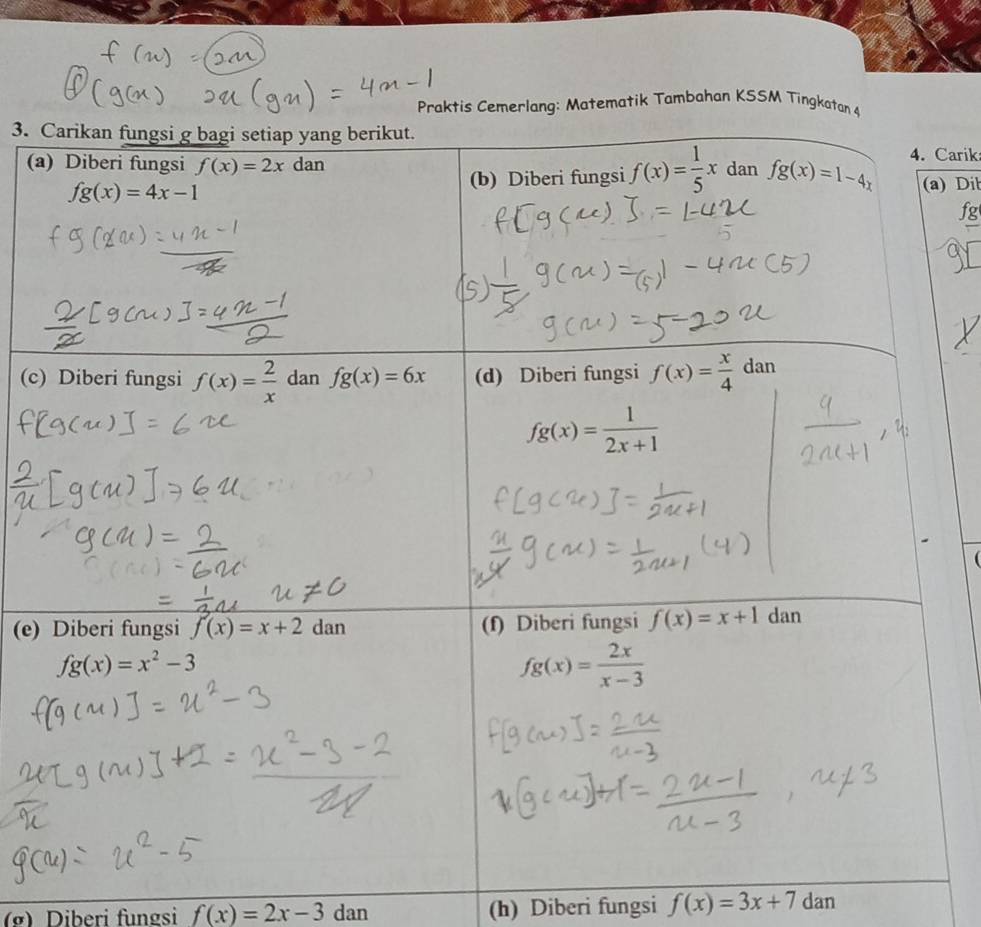 f(x) = 2x
f(g(x) 2x(gx) = 4x-1
Praktis Cemerlang: Matematik Tambahan KSSM Tingkatan 4
3. Carikan fungsi g bagi setiap yang berikut.
(a) Diberi fungsi f(x) = 2x dan
fg(x) = 4x − 1
4x-1
2/2 [g(x)] = 4x-1/2
(b) Diberi fungsi f(x) = 1/5 x dan fg(x) = 1 − 4x
f[g(x)] = 1-4x
(5) 1/5 g(x) = (5)1 - 4x(5)
g(x) = 5-20x
(c) Diberi fungsi f(x) = 2/x dan fg(x) = 6x
f[g(x)] = 6x
2/x [g(x)] = 6x
g(x) = 2/6x
= 1/3x x ≠ 0
(d) Diberi fungsi f(x) = x/4 dan
fg(x) = 1/(2x + 1)
f[g(x)] = 1/2x+1
x/4 g(x) = 1/2x+1 (4)
4/2x+1 ,
(e) Diberi fungsi f(x) = x + 2 dan
fg(x) = x² − 3
f[g(x)] = x² - 3
x[g(x)] + 2 = x² - 3 - 2
g(x) = x² - 5
(f) Diberi fungsi f(x) = x + 1 dan
fg(x) = 2x/(x − 3)
f[g(x)] = 2x/x-3
x[g(x)]+1 = 2x-1/x-3 , x ≠ 3
(g) Diberi fungsi f(x) = 2x − 3 dan
(h) Diberi fungsi f(x) = 3x + 7 dan
4. Carik
(a) Dib
fg
g[